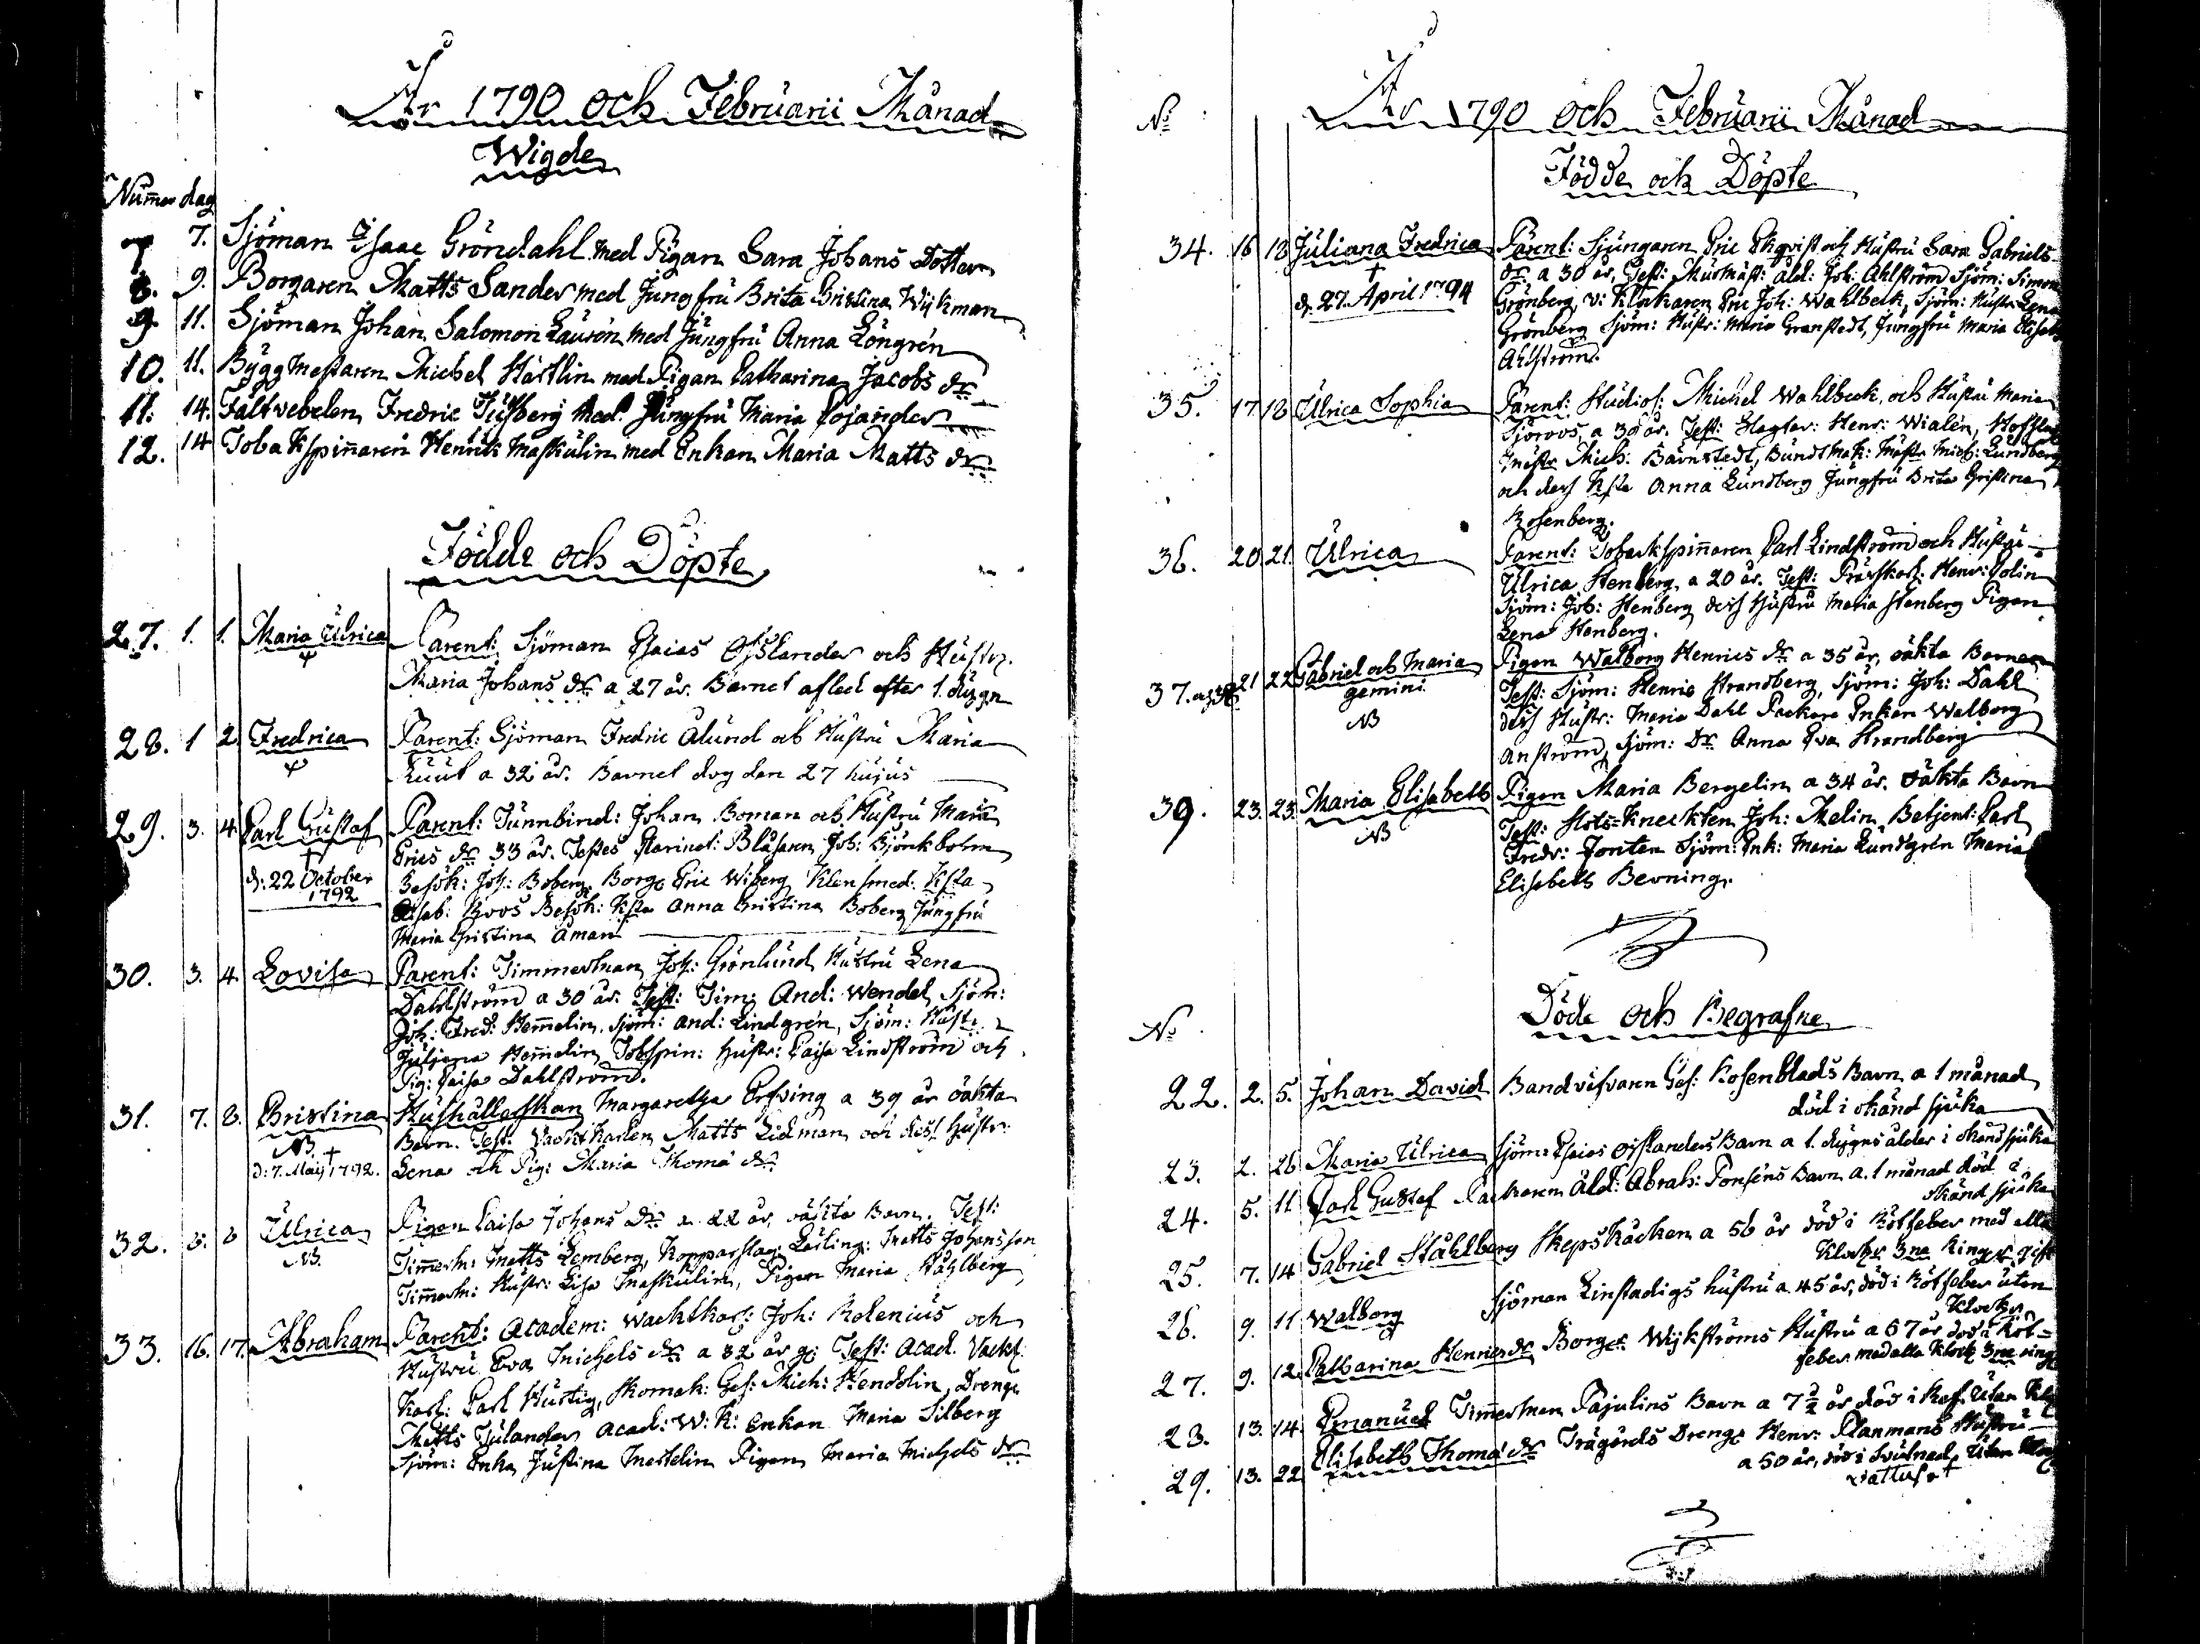 År 1790 och Februarii Månad
Wigde
Numer dag
7. 7. Sjöman Isaac Gröndahl med Pigan Sara Johans Dotter
8. 9. Borgaren Matts Sander med Jungfru Brita Cristina Wykman
9. 11. Sjöman Johan Salomon Lauren med Jungfru Anna Löngrén
10. 11. Byggmestaren Michel Hartlin med Pigan Catharina Jacobs dr
11. 14. Fältvebelen Fredric med Jungfru Maria Cojander
12. 14 Tobakspinaren Henrik Maskulin med Enkan Maria Matts dr
Födde och Döpte
27. 1. 1. Maria Ulrica Parent: Sjöman Esaias Osslander och Hustr.
Maria Johans dr a 27 år. Barnet afled efter 1. dygn
28. 1 2 Fredrica Parent: Sjöman Fredric Ålund och Hustru Maria
a 32 år. Barnet dog den 27 hujus
29. 3. 4. Carl Gustaf Parent: Tunnbind: Johan Boman och Hustru Maria
Erics dr 33 år. Testes Clarinet: Blåsaren Joh: Björkbohm
d: 22 October
1792
Besök: Joh: Boberg, Borg: Eric Wiberg Klensmed: Hsta
Elisab: Roos Besök: Hsta Anna Cristina Boberg Jungfru
Maria Cristina Åman
30. 3. 4. Lovisa Parent: Timmerman Joh: Grönlund Hustru Lena
Dahlström a 30 år. Test: Tim: And: Wendel, Sjöm:
Joh: Fred: Hemelin, Sjöm: And: Lindgrén, Sjöm: Hust:
Juliana Hemelin Tobspin: Hustr: Caisa Lindström och
Pig: Caisa Dahlström.
31. 7. 8. Christina Hushållerskan Margaretha Erfving a 39 år oäkta
NB
d: 7. Maij 1792.
Barn. Test: Vacktkarlen Matts Lidman och dess Hustr:
Lena och Pig: Maria Thomæ dr
32. 8. 8 Ulrica Pigan Caisa Johans dr a 22 år, oäkta Barn. Test:
NB.
Timmerm: Matts Lemberg, Kopparslag: Lärling: Matts Johansson
Timmerm: Hustr: Lisa Maskulin, Pigan Maria Ståhlberg
33. 16. 17. Abraham Parent: Academ: Wachtkarl: Joh: Rolenius och
Hustru Eva Michels dr a 32 år g: Test: Acad. Vackt:
Karl: Carl Hurtig, Skomak: Ges: Mich: Hendolin, Dreng:
Matts Julander Acad: W: K: Enkan Maria Silberg
Sjöm: Enka Justina Mertelin Pigan Maria Michels dr
No År 1790 och Februarii Månad
Födde och Döpte
34. 16 18 Juliana Fredrica Parent: Sjungaren Eric Ekqvist och Hustru Sara Gabriels
d. 27. April 1794
dr a 30 år, Test: Murmäst: Åld: Joh: Ahlström Sjöm: Simon
Grönberg, v: Klockaren Eric Joh: Wahlbeck, Sjöm: Hustr Lena
Grönberg Sjöm: Hustr: Maria Granstedt, Jungfru Maria Elisab
Ahlström.
35. 17. 18 Ulrica Sophia Parent: Studios: Michel Wahlbeck, och Hustru Maria
Sjöroos, a 30 år. Test: Slagtar: Henr: Wialén, Hofslag
Mäst: Mich: Bärnstedt, Bundtmak: Mäst: Mich: Lundberg
och dess Hsta Anna Lundberg Jungfru Brita Cristina
Rosenberg.
36. 20. 21. Ulrica Parent: Tobackspinaren Carl Lindström och Hustru
Ulrica Stenberg, a 20 år. Test: Henr: Colin
Sjöm: Joh: Stenberg dess Hustru Maria Stenberg Pigan
Lena Stenberg.
37. og 38 21 22 Gabriel och Maria Pigan Walborg Henrics dr a 35 år, oäkta Barn
gemini
NB
Test: Sjöm: Henric Strandberg, Sjöm: Joh: Dahl
dess Hustr: Maria Dahl Packare Enkan Walborg
Anström, Sjöm: Dr Anna Eva Strandberg
39. 23. 23. Maria Elisabeth Pigan Maria Bergelin a 34 år. Oäkta Barn
NB
Test: Slots=Kneckten Joh: Melin Betjent: Carl
Fredr: Forsten Sjöm: Enk: Maria Lundgrén Maria
Elisabeth Berning.
Döde och Begrafne
No
22. 2. 5. Johan David Bandväfvaren Ges: Rosenblads Barn a 1 månad
död i okänd sjuka
23. 2. 26 Maria Ulrica Sjöm: Esaias Osslanders Barn a 1. dygns ålder i okänd sjuka
24. 5. 11 Carl Gustaf Packaren Åld: Abrah: Ponséns Barn a. 1 månad död i
okänd sjuka
25. 7. 14 Gabriel Ståhlberg Skepskäcken a 56 år död i Rötfeber med alla
Klockr 3ne Ringr. gift
26. 9. 11 Walborg Sjöman Linstadigs hustru a 45 år, död i Rötfeber utan
Klockr
27. 9. 12. Catharina Henricsdr Borger Wykströms Hustru a 67 år död i Röt=
feber med alla Klock 3ne ring
28. 13. 14 Emanuel Timerman Pajulins Barn a 7 ½ år död i Utan Klo
29. 13. 22 Elisabeth Thomædr Trägårds Dreng: Henr: Planmans Hustru
a 50 år, död i Svulnad, Utan Kloc